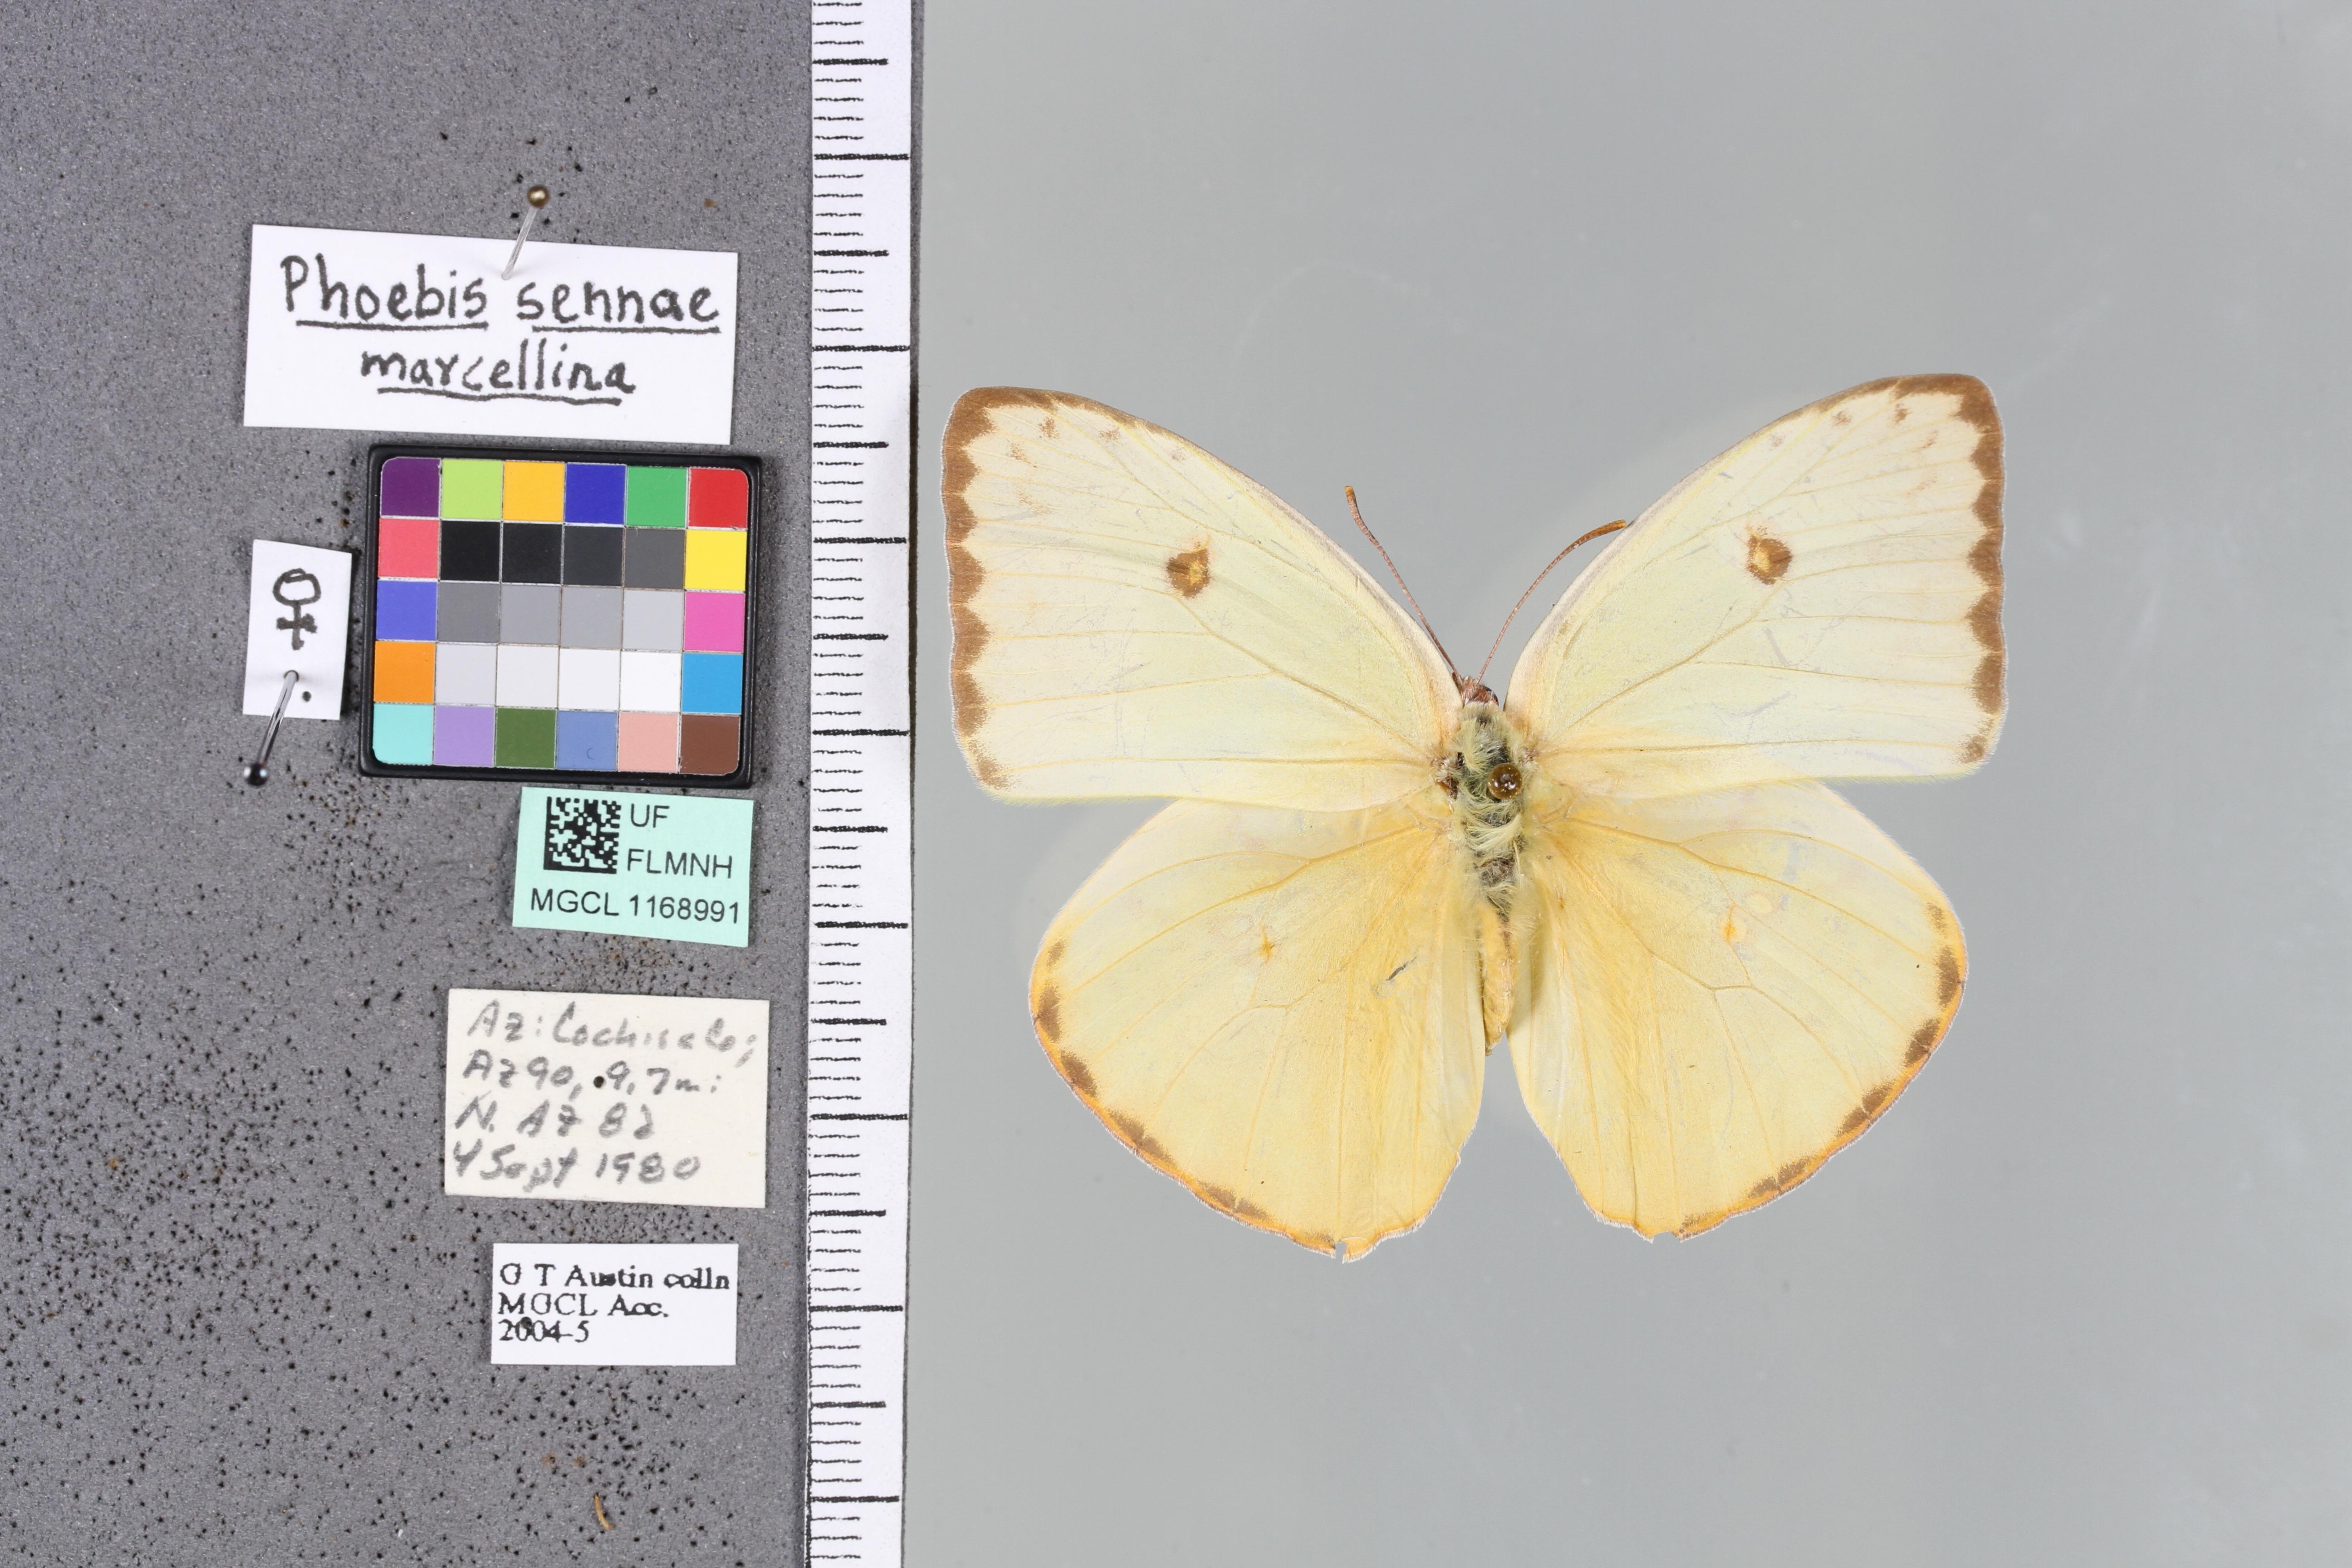 Phoebis sennae
marcellina
♀.
UF
FLMNH
MGCL 1168991
Az: Cochise Co;
AZ 90, 9.7 mi
N. AZ 82
4 Sept 1980
G T Austin colln
MGCL Acc.
2004-5